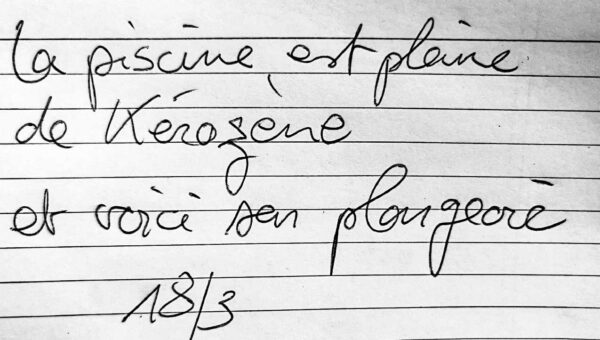 La piscine est pleine
de Kérozène
et voici son plongeoir
18/3